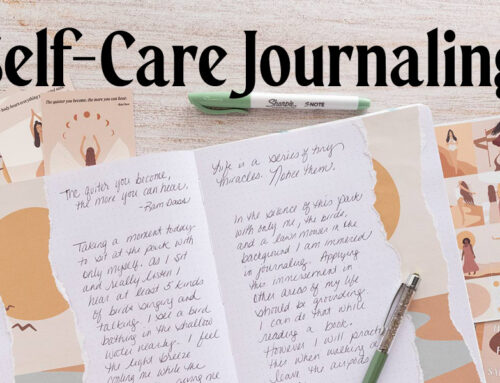 Self-Care Journaling
Sharpie S·NOTE
The quieter you become, the more you can hear.
The quieter you become,
the more you can hear.
-Ram Dass
Taking a moment today
to sit at the park with
only myself. As I sit
and really listen I
hear at least 5 kinds
of birds singing and
talking. I see a bird
bathing in the shallow
water nearby. I feel
the light breeze
cooling me while the
giving me
Life is a series of tiny
miracles. Notice them.
In the silence of this park
with only me, the birds,
and a lawn mower in the
background I am immersed
in journaling. Applying
this immersement in
other areas of my life
should be grounding.
I can do that while
reading a book.
However I will practice
this when walking a
leave the airpods